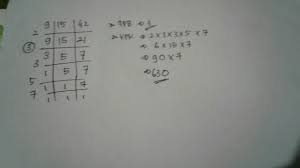 9 | 15 | 42
2 | 9 | 15 | 21
③ | 3 | 5 | 7
3 | 1 | 5 | 7
5 | 1 | 1 | 7
7 | 1 | 1 | 1
⇒ 3
⇒ 2×3×3×5×7
⇒ 6×15×7
⇒ 90×7
⇒ 630